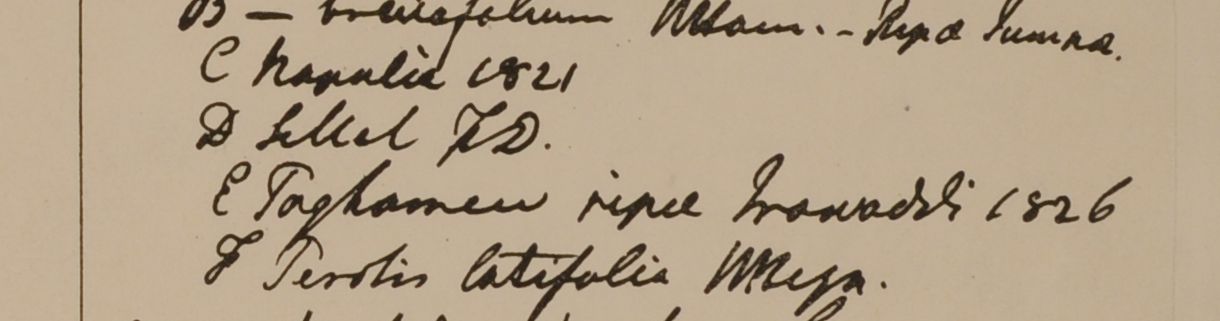 B — brevifolium Wltom. - Ripa Jumna.
C Napalia 1821
D Sillet FD.
E Taghamew ripæ Irawaddi 1826
F Perotis latifolia